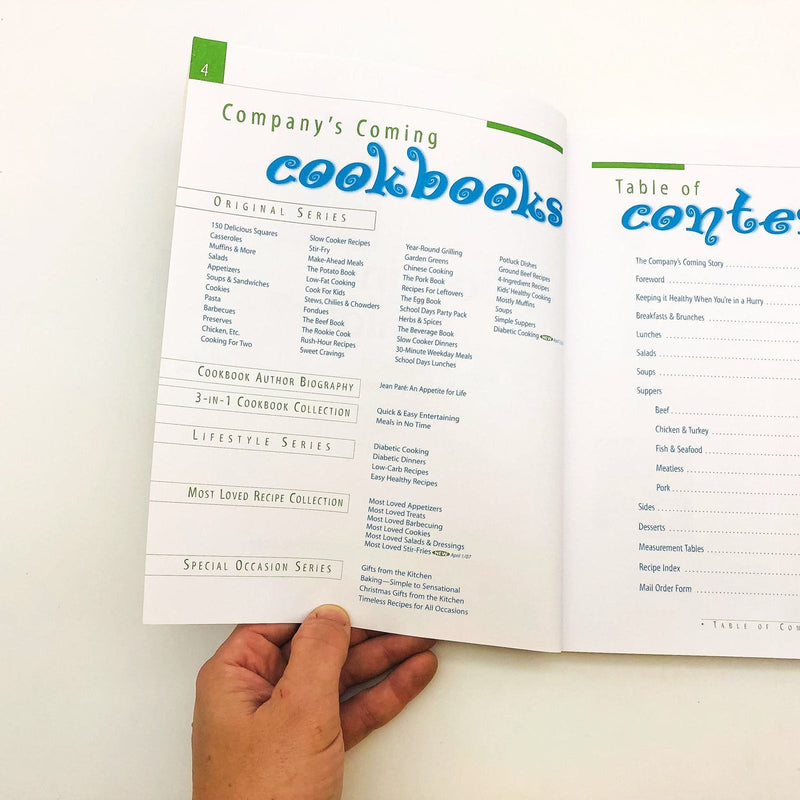 4
Company's Coming
cookbooks
Original Series
150 Delicious Squares
Casseroles
Muffins & More
Salads
Appetizers
Soups & Sandwiches
Cookies
Pasta
Barbecues
Preserves
Chicken, Etc.
Cooking For Two
Slow Cooker Recipes
Stir-Fry
Make-Ahead Meals
The Potato Book
Low-Fat Cooking
Cook For Kids
Stews, Chilies & Chowders
Fondues
The Beef Book
The Rookie Cook
Rush-Hour Recipes
Sweet Cravings
Year-Round Grilling
Garden Greens
Chinese Cooking
The Pork Book
Recipes For Leftovers
The Egg Book
School Days Party Pack
Herbs & Spices
The Beverage Book
Slow Cooker Dinners
30-Minute Weekday Meals
School Days Lunches
Potluck Dishes
Ground Beef Recipes
4-Ingredient Recipes
Kids' Healthy Cooking
Mostly Muffins
Soups
Simple Suppers
Diabetic Cooking NEW
Cookbook Author Biography
Jean Paré: An Appetite for Life
3-in-1 Cookbook Collection
Quick & Easy Entertaining
Meals in No Time
Lifestyle Series
Diabetic Cooking
Diabetic Dinners
Low-Carb Recipes
Easy Healthy Recipes
Most Loved Recipe Collection
Most Loved Appetizers
Most Loved Treats
Most Loved Barbecuing
Most Loved Cookies
Most Loved Salads & Dressings
Most Loved Stir-Fries NEW April 1/07
Special Occasion Series
Gifts from the Kitchen
Baking—Simple to Sensational
Christmas Gifts from the Kitchen
Timeless Recipes for All Occasions
Table of
conte
The Company's Coming Story
Foreword
Keeping it Healthy When You're in a Hurry
Breakfasts & Brunches
Lunches
Salads
Soups
Suppers
Beef
Chicken & Turkey
Fish & Seafood
Meatless
Pork
Sides
Desserts
Measurement Tables
Recipe Index
Mail Order Form
• Table of Con